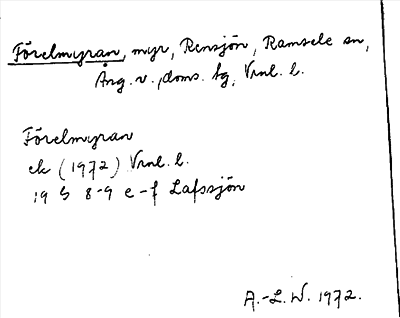 Förelmyran, myr, Rensjön, Ramsele sn,
Ång. v., doms. hg, Vnl. l.
Förelmyran
ek (1972) Vnl. l.
19 G 8-9 e-f Lafssjön
A.-L. W. 1972.